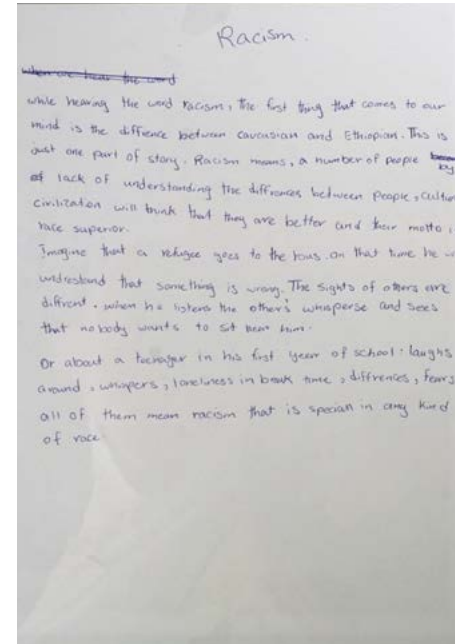 Racism.
when we hear the word
while hearing the word racism, the first thing that comes to our
mind is the diffrence between caucasian and Ethiopian. This is
just one part of story. Racism means, a number of people
by
of lack of understanding the diffrences between people, cultur
civilization will think that they are better and their motto i
race superior.
Imagine that a refugee goes to the bus. on that time he
understand that something is wrong. The sights of others are
diffrent. when he listens the other's whisperse and sees
that nobody wants to sit near him.
Or about a teenager in his first year of school: laughs
around, whispers, loneliness in break time, diffrences, fears
all of them mean racism that is in any kind
of race.